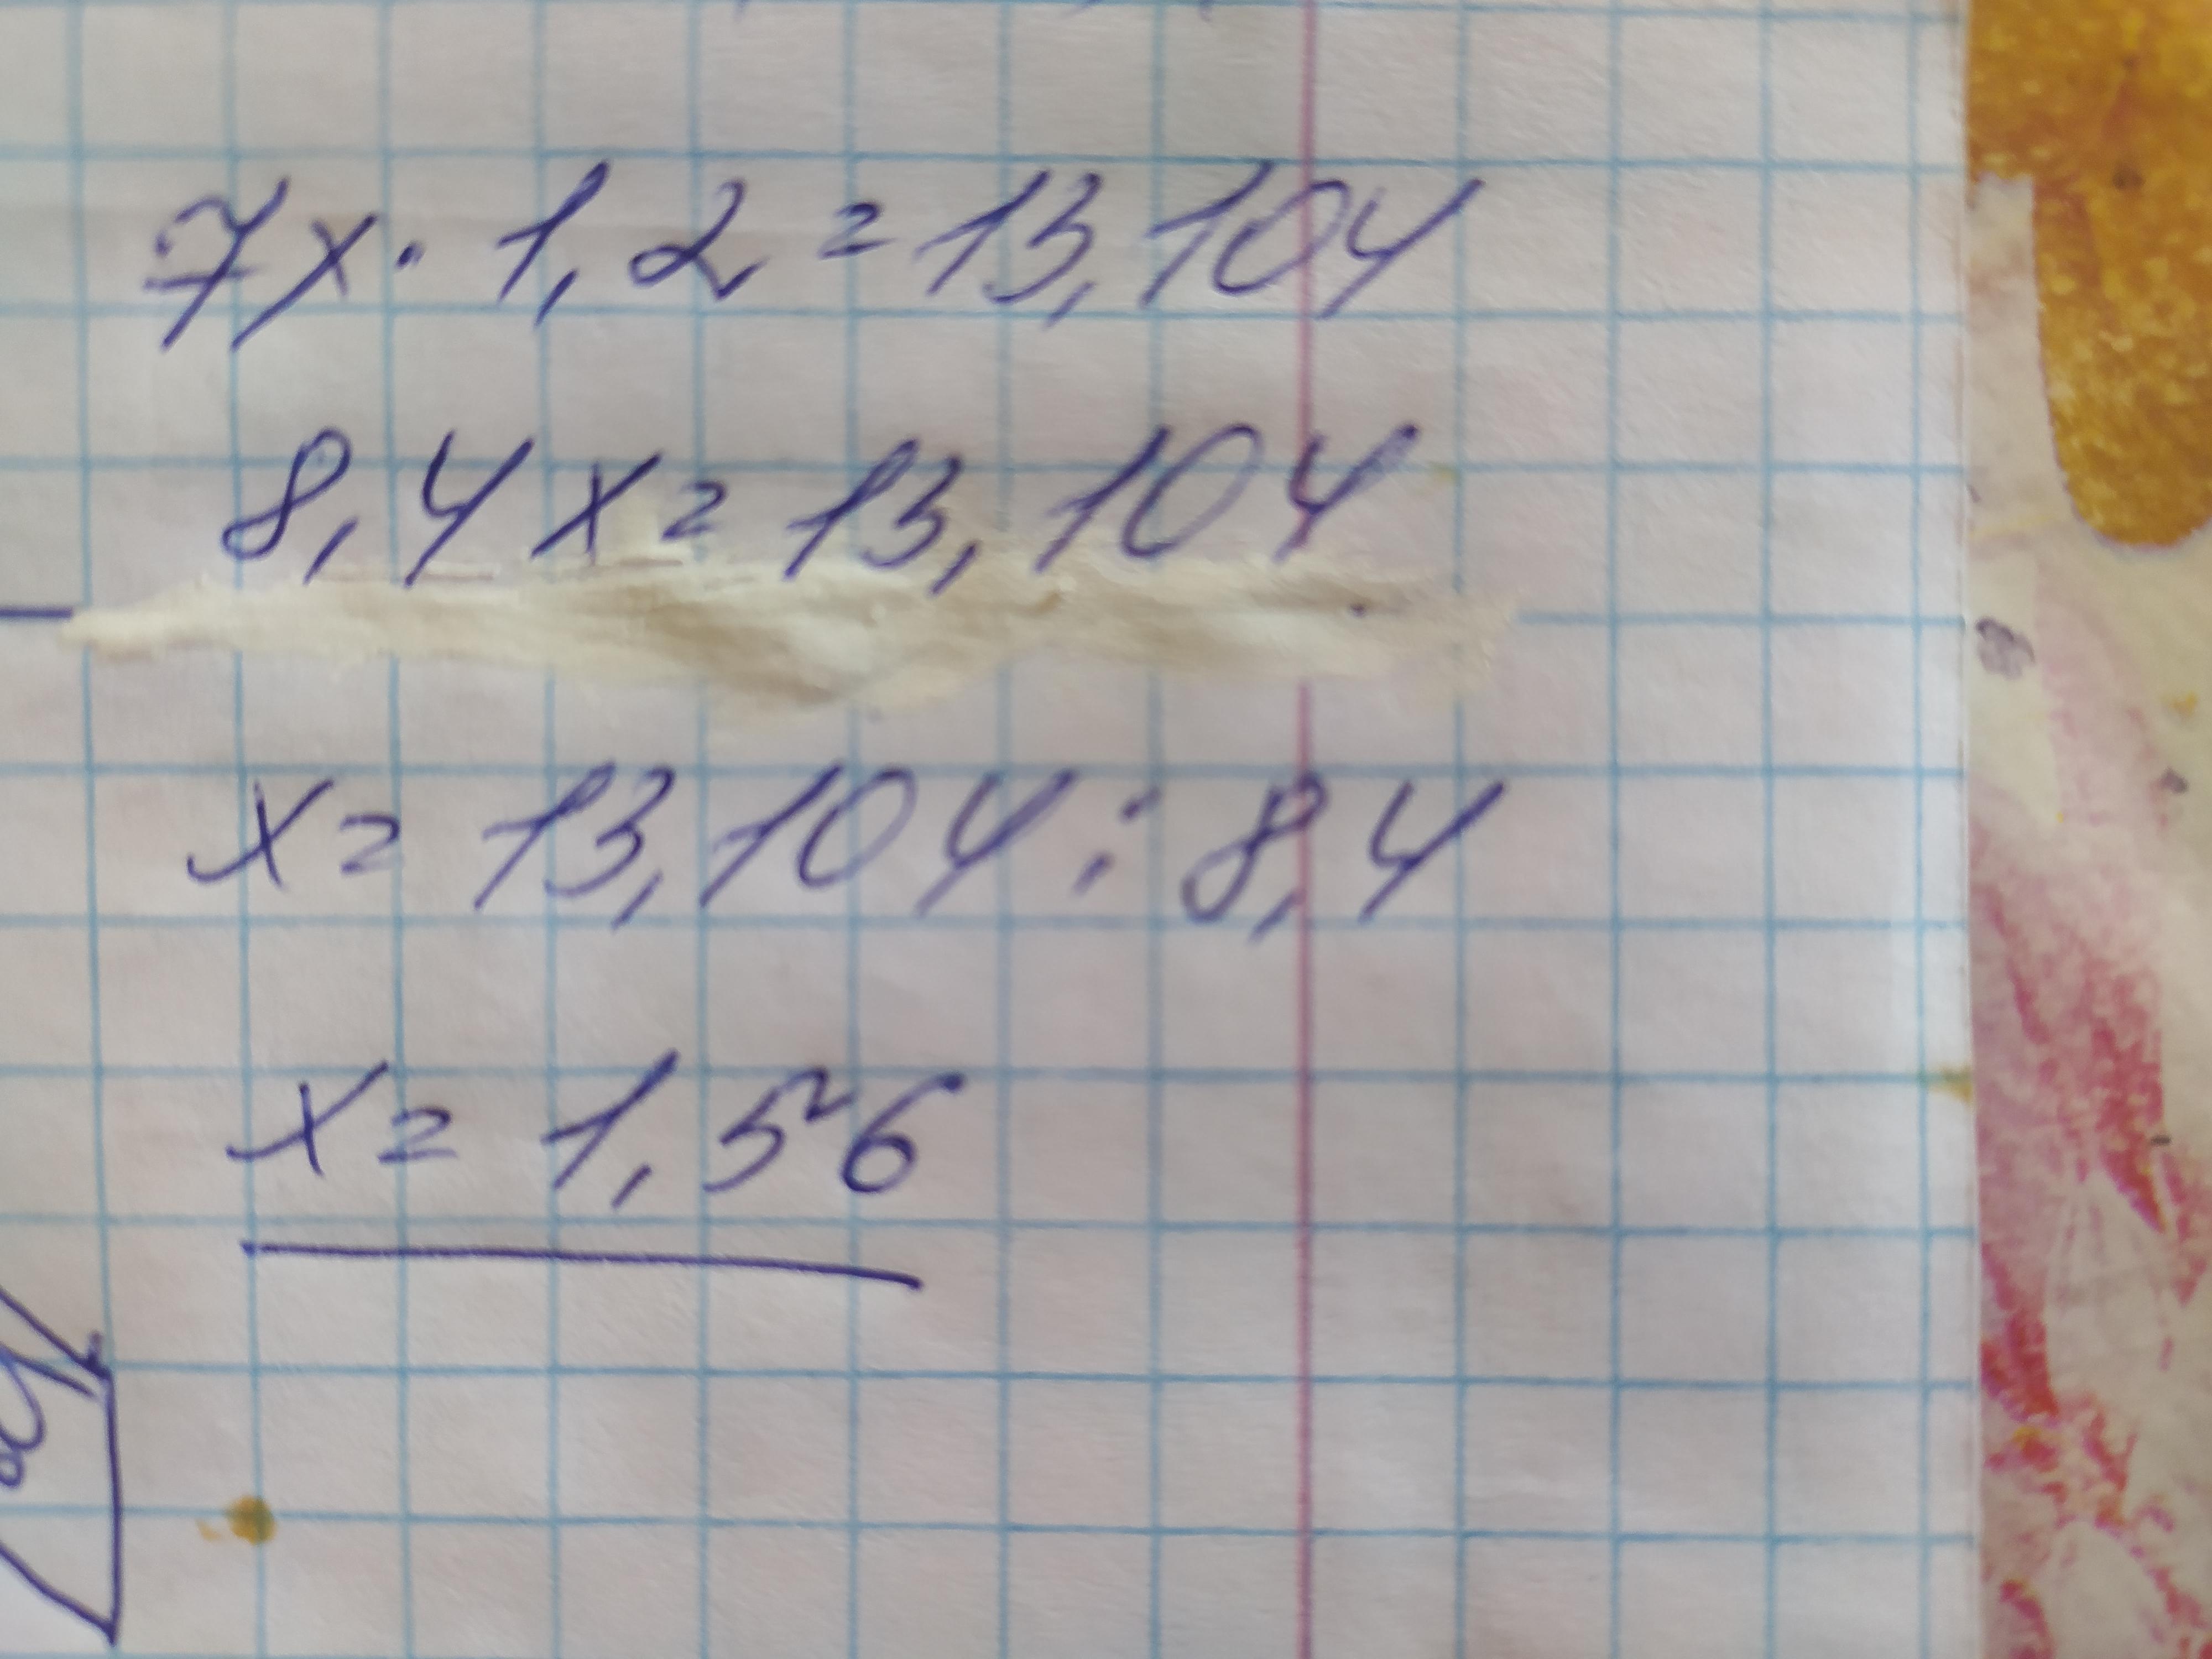 7x · 1,2 = 13,104
8,4x = 13,104
x = 13,104 : 8,4
x = 1,56